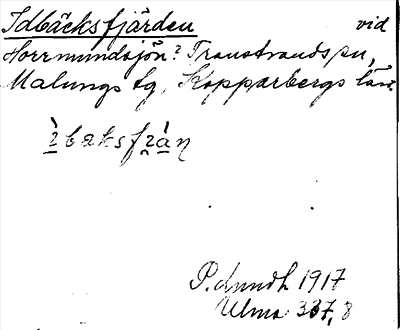 Idbäcksfjärden vid
Horrmundsjön? Transtrands sn,
Malungs tg, Kopparbergs län.
P. Lundh 1917
Ulma 337,8